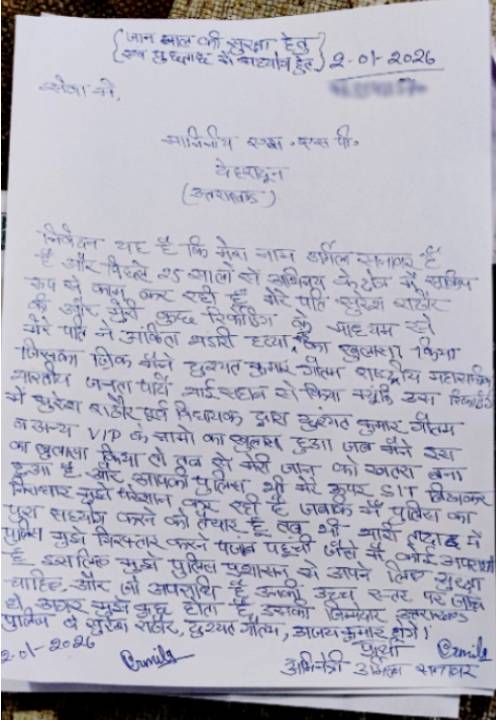 (जान माल की सुरक्षा हेतु
एवं पूछताछ में सहयोग हेतु) 2-01-2026
सेवा में,
माननीय एस. एस. पी.
देहरादून
(उत्तराखंड)
निवेदन यह है कि मेरा नाम उर्मिला सनावर है
है और पिछले 25 सालों से अभिनय के क्षेत्र में सक्रिय
रूप से काम कर रही हूँ मेरे पति सुरेश राठौर
की और मेरी कुछ रिकॉर्डिंग के माध्यम से
मेरे पति ने अंकिता भंडारी हत्या का खुलासा किया
जिसका जिक्र मैंने दुष्यंत कुमार गौतम राष्ट्रीय महासचिव
भारतीय जनता पार्टी से किया क्यूंकि उस रिकॉर्डिंग
में सुरेश राठौर पूर्व विधायक द्वारा दुष्यंत कुमार गौतम
व अन्य VIP के नामों का खुलासा हुआ जब मैंने इस
का खुलासा किया तो तब से मेरी जान को खतरा बना
हुआ है और आपकी पुलिस भी मेरे ऊपर SIT बिठाकर
निराधार मुझे परेशान कर रही है जबकि मैं पुलिस का
पूरा सहयोग करने को तैयार हूँ तब भी भारी तादाद में
पुलिस मुझे गिरफ्तार करने पहुंची जैसे मैं कोई अपराधी
हूँ इसलिए मुझे पुलिस प्रशासन से अपने लिए सुरक्षा
चाहिए और जो अपराधी है उनकी उच्च स्तर पर जाँच
हो अगर मुझे कुछ होता है उसका जिम्मेदार उत्तराखण्ड
पुलिस व सुरेश राठौर, दुष्यंत गौतम, अजय कुमार होंगे।
2-01-2026 Urmila प्रार्थी Urmila
अभिनेत्री उर्मिला सनावर